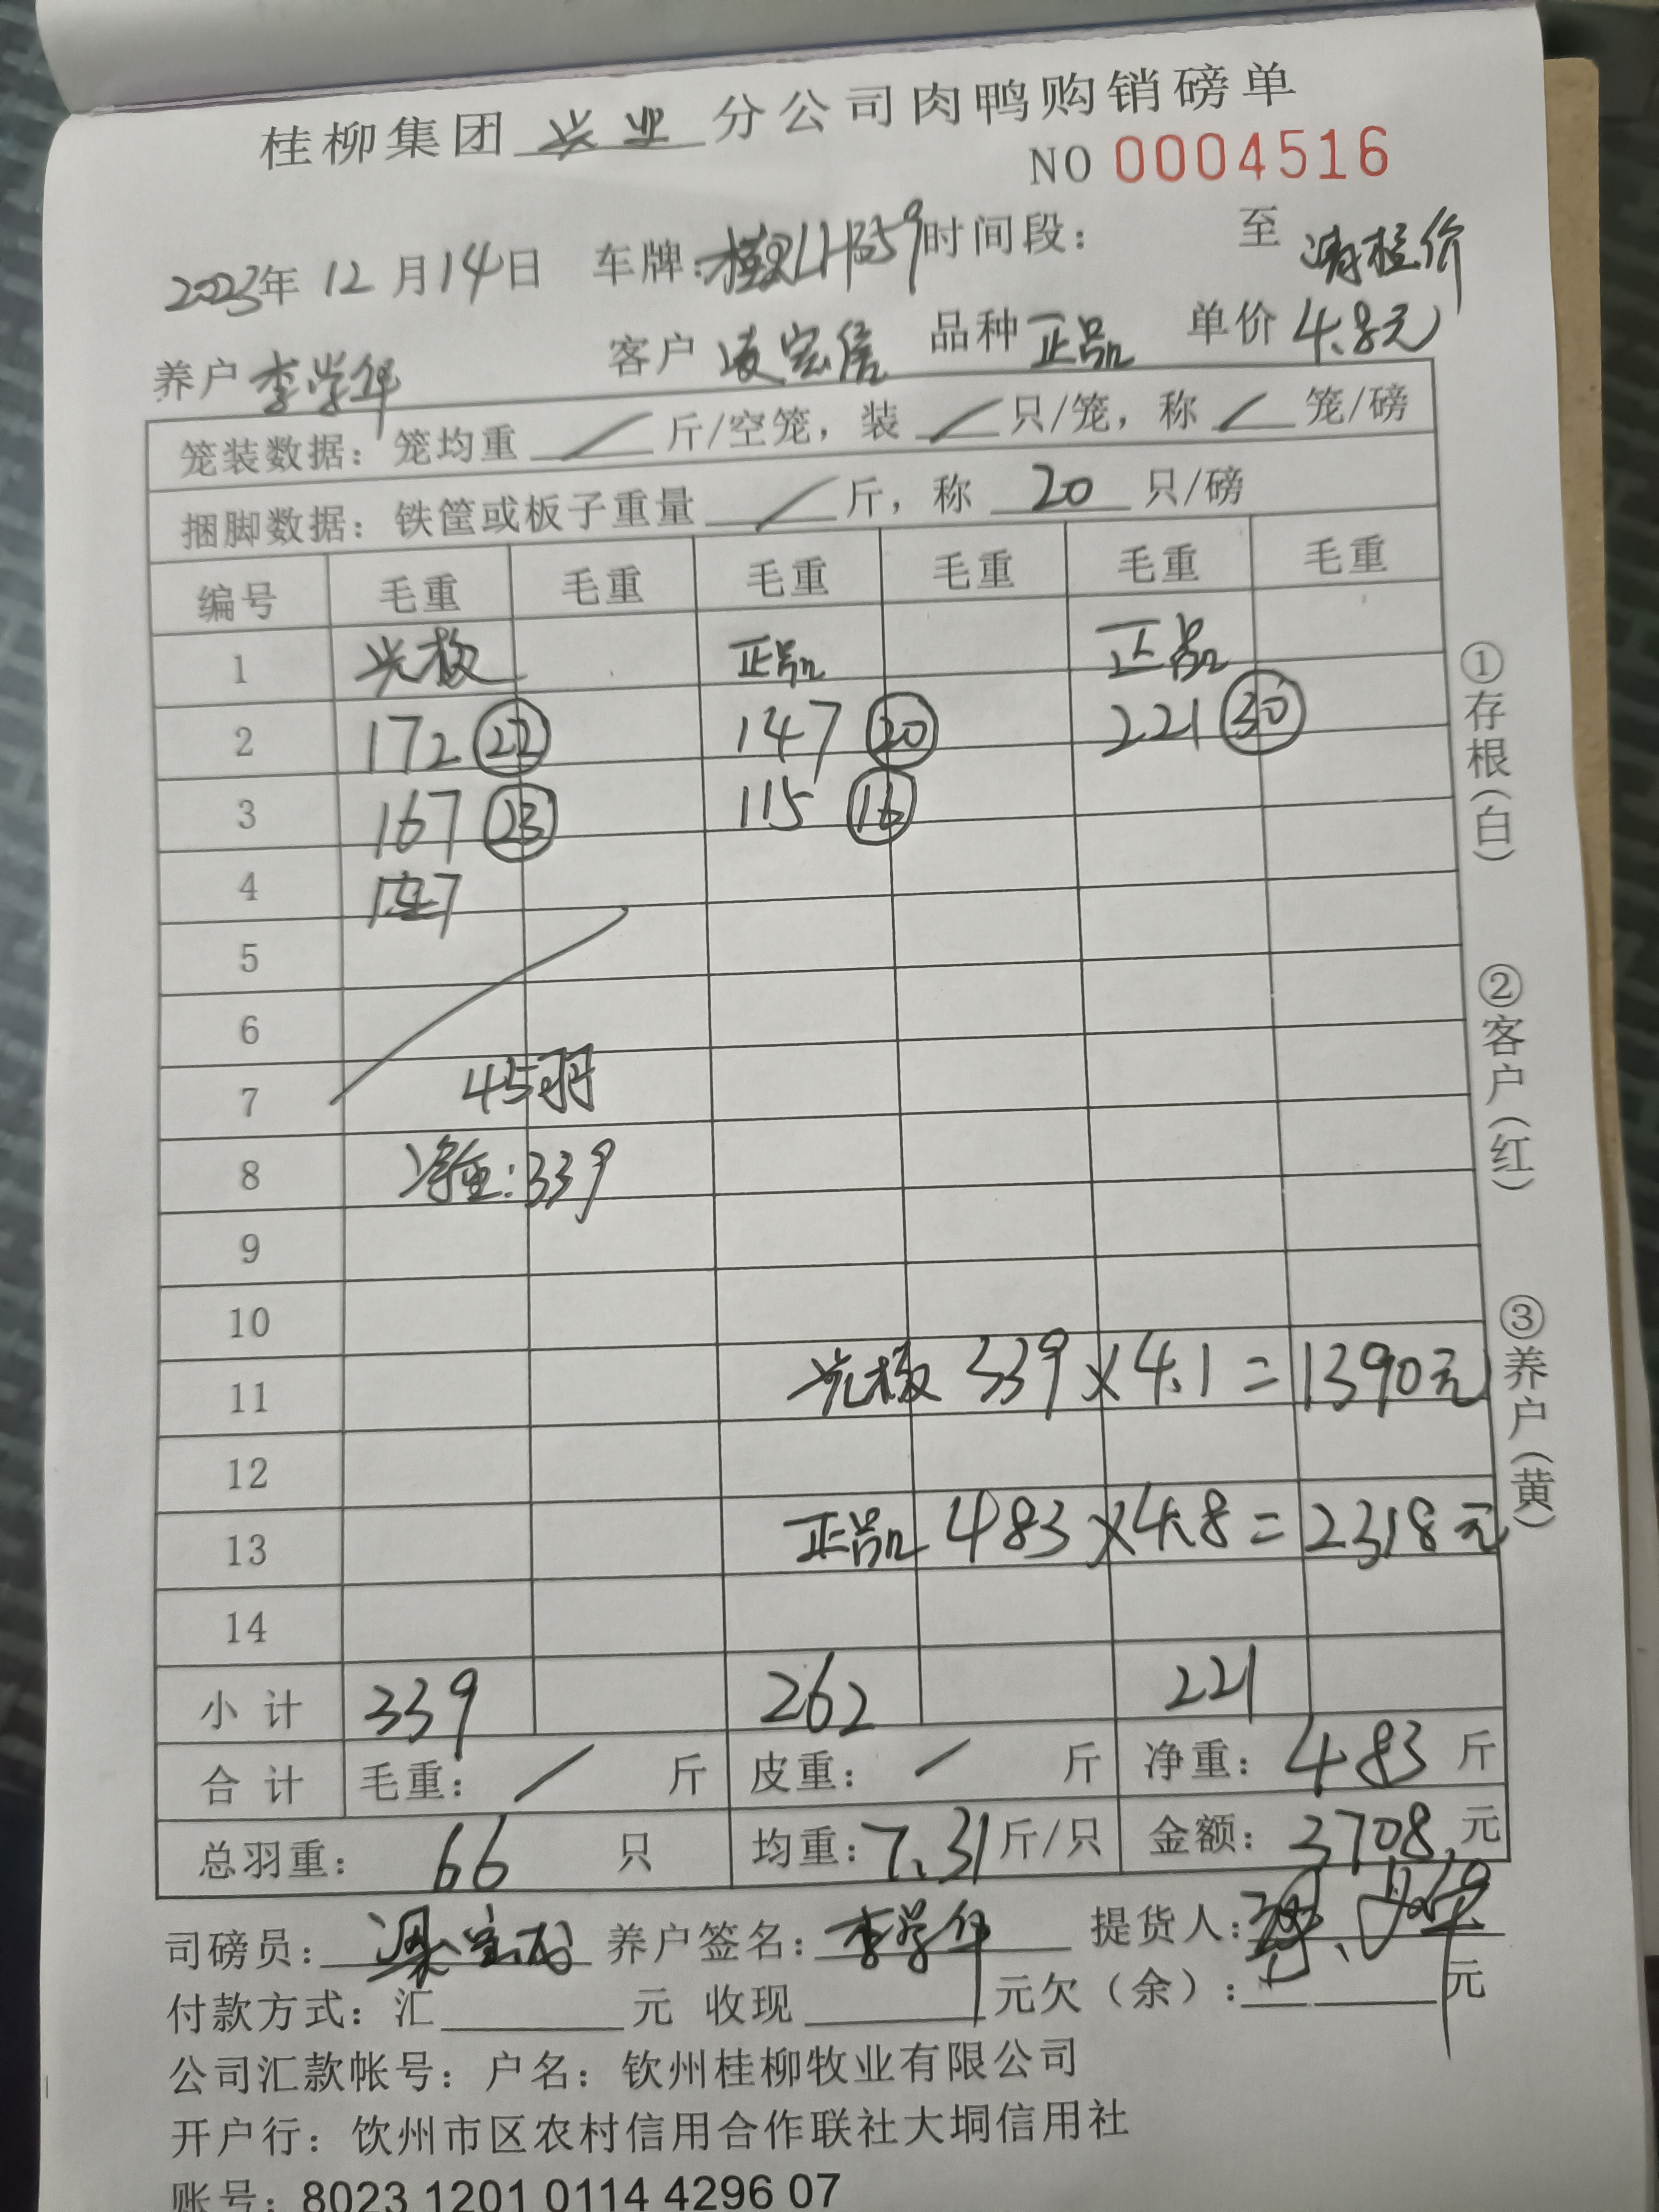 桂柳集团 兴业 分公司肉鸭购销磅单
NO 0004516
2023年 12 月 14 日 车牌: 时间段: 至 请核价
养户 李学年 客户 凌宏信 品种 正品 单价 4.8元
笼装数据: 笼均重 / 斤/空笼, 装 / 只/笼, 称 / 笼/磅
捆脚数据: 铁筐或板子重量 / 斤, 称 20 只/磅
编号 毛重 毛重 毛重 毛重 毛重 毛重
1 正品 正品
2 172 22 147 20 221 30
3 167 23 115 16
4
5
6
7 45羽
8 净重:339
9
10
11 339×4.1=1390元
12
13 正品 483×4.8=2318元
14
小 计 339 262 221
合 计 毛重: / 斤 皮重: / 斤 净重: 483 斤
总羽重: 66 只 均重: 7.31 斤/只 金额: 3708. 元
司磅员: 养户签名: 李学年 提货人:
付款方式: 汇 元 收现 元欠(余): 元
公司汇款帐号: 户名: 钦州桂柳牧业有限公司
开户行: 饮州市区农村信用合作联社大垌信用社
账号: 8023 1201 0114 4296 07
①存根(白)
②客户(红)
③养户(黄)